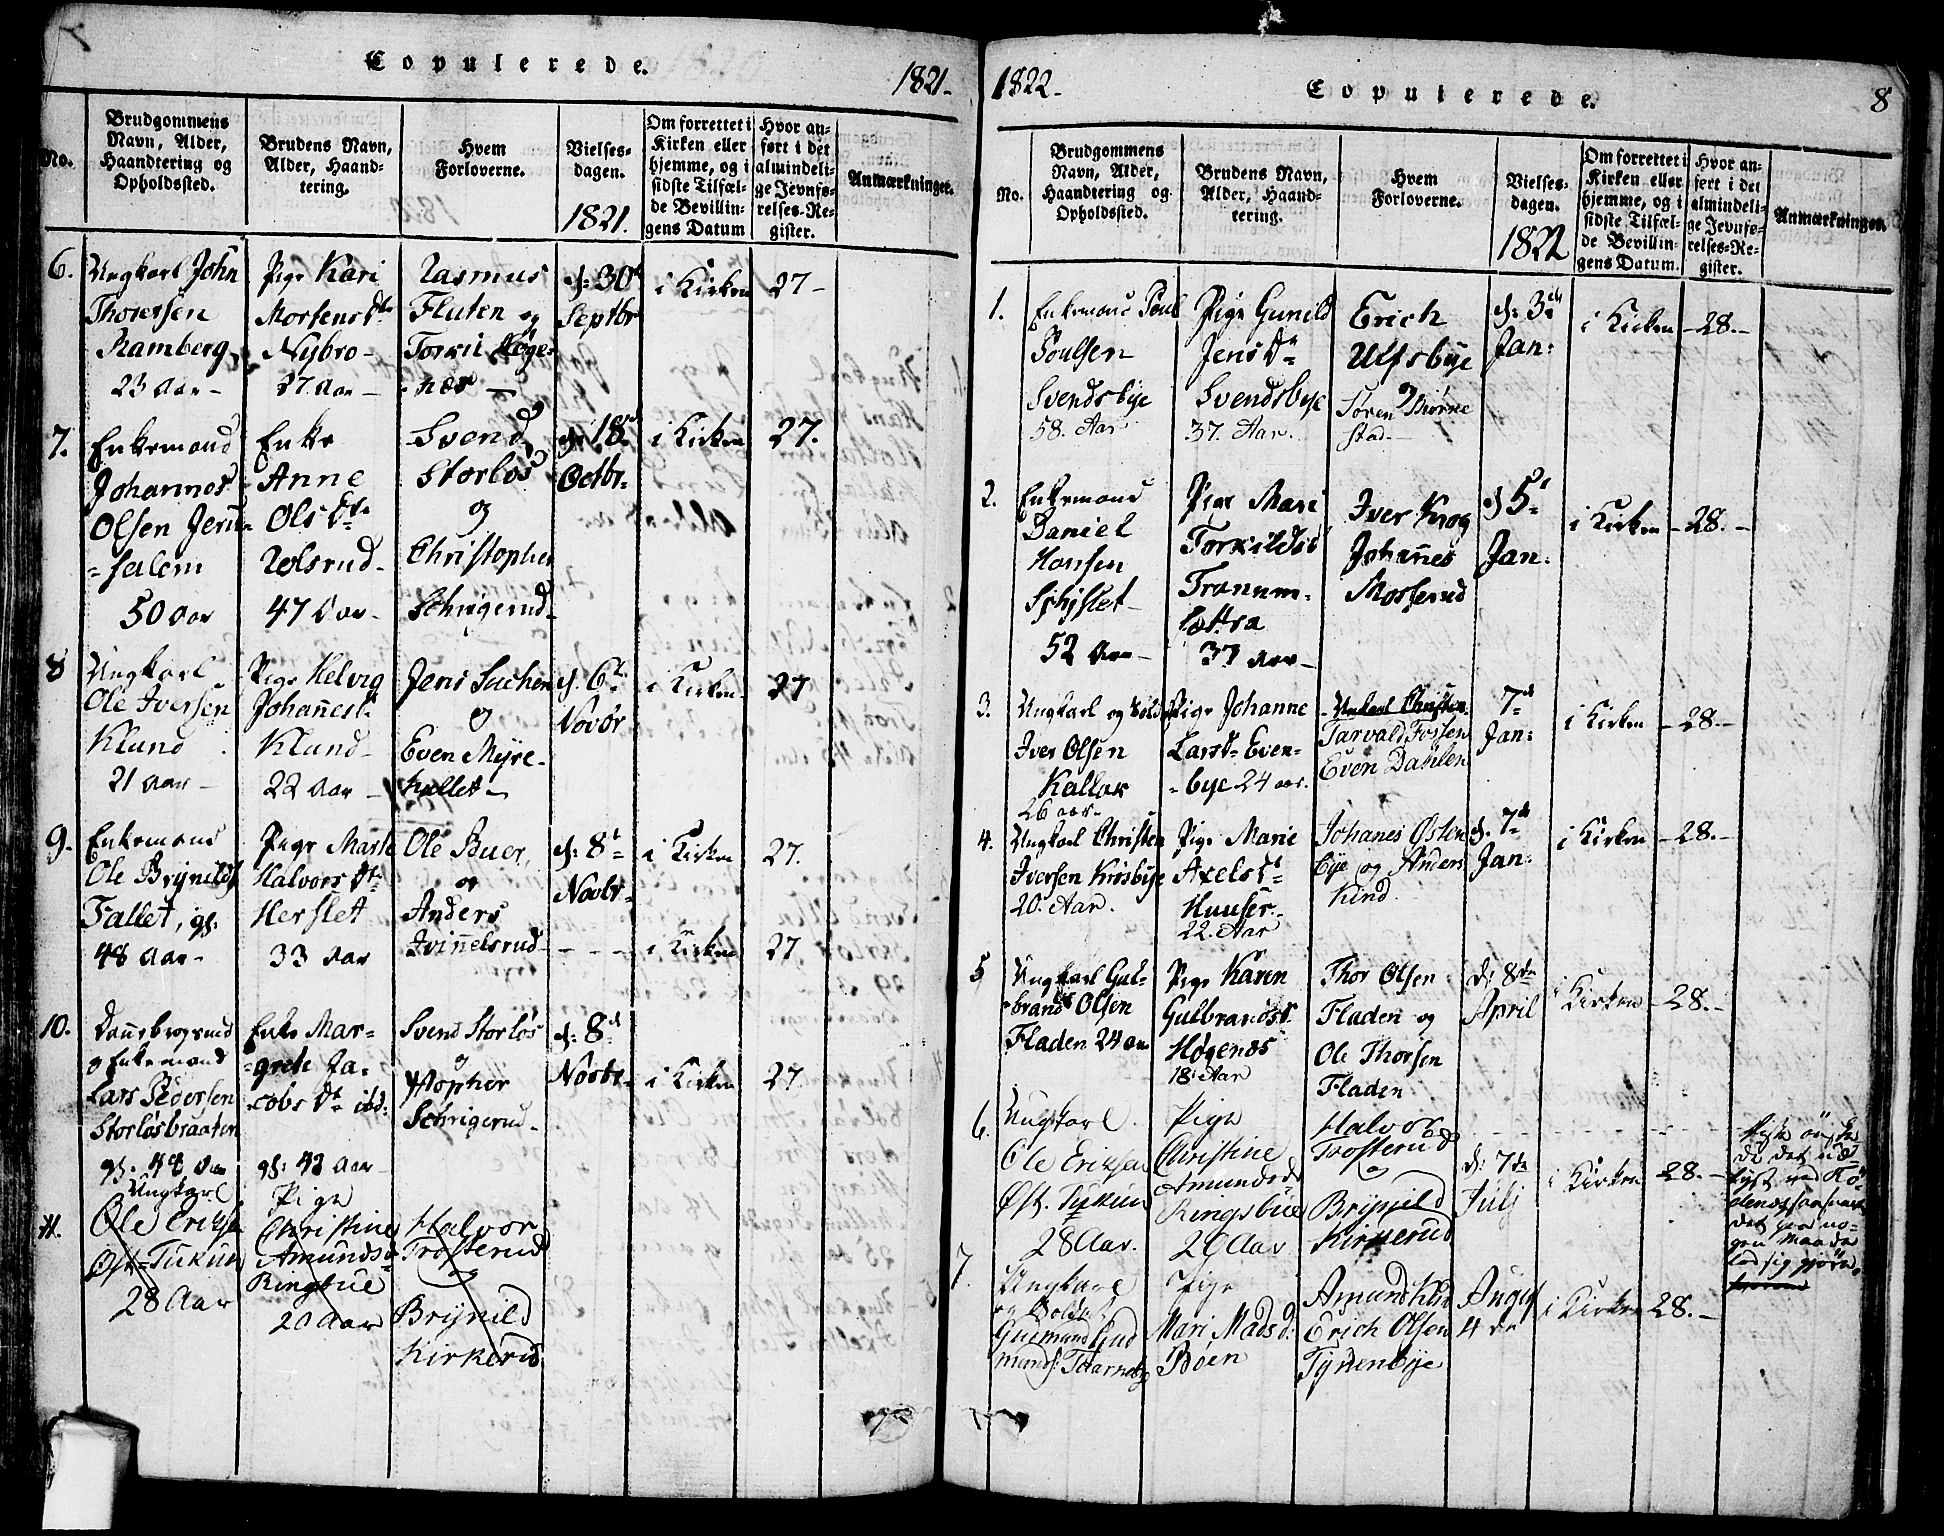 Copulerede.
1821.
No.
Brudgommens
Navn, Alder,
Haandtering og
Opholdssted.
Brudens Navn,
Alder, Haand-
tering.
Hvem
Forloverne.
Vielses-
dagen.
1821.
Om forrettet i
Kirken eller
hjemme, og i
sidste Tilfæl-
de Bevillin-
gens Datum
Hvor an-
ført i det
almindeli-
ge Jevnfø-
relses-Re-
gister.
Anmærkninger.
6.
Ungkarl John
Thoresen
Ramberg,
23 Aar -
Pige Kari
Mortensdtr
Nybro -
27 Aar -
Rasmus
Fluten og
Torkil Høge-
næs -
d: 30t
Septbr
i Kirken
27 -
7.
Enkemand
Johannes
Olsen Jeru-
salem
50 Aar
Enke
Anne
Olsdtr
Rolsrud -
47 Aar -
Svend
Storløs
og
Christopher
Schrigerud -
d: 18
Octbr -
i Kirken
27.
8
Ungkarl
Ole Iversen
Klund
21 Aar -
Pige Helvig
Johannesd.
Klund -
22 Aar -
Jens Suchen
og
Even Myre-
hullet -
d. 6t
Novbr
i Kirken
27
9.
Enkemand
Ole Brynilds
Tallet, gs.
48 Aar -
Pige Marte
Halvorsdtr
Herslet
33 Aar
Ole Buer,
og
Anders
Tvinnelsrud -
d: 8t
Novbr -
i Kirken
27.
- - -
i Kirken
27
10.
Dannebrogsmand
og Enkemand
Lars Pedersen
Storløsbraaten
gs. 44 Aar
Enke Mar-
grete Ja-
cobsdt ibd:
gs: 43 Aar
Svend Storløs
og
Stopher
Schrigerud -
d: 8d
Novbr -
i Kirken
27.
11.
Ungkarl
Ole Eriksen
Øst-Tukun
28 Aar
Pige
Christine
Amundsd
Ringsbue
20 Aar
Halvor
Trosterud
og
Brynild
Kirkerud
1822.
Copulerede.
8
No.
Brudgommens
Navn, Alder,
Haandtering og
Opholdssted.
Brudens Navn,
Alder, Haand-
tering.
Hvem
Forloverne.
Vielses-
dagen.
1822
Om forrettet i
Kirken eller
hjemme, og i
sidste Tilfæl-
de Bevillin-
gens Datum.
Hvor an-
ført i det
almindeli-
ge Jevnfø-
relses-Re-
gister.
Anmærkninger.
1.
Enkemand Poul
Poulsen
Svendsbye
58. Aar
Pige Gunild
Jensd
Svendsbye
37. Aar.
Erich
Ulfsbye
og
Søren Biørne
stad -
d: 3
Jan:
i Kirken
- 28. -
2.
Enkemand
Daniel
Hansen
52 Aar -
Pige Mari
Torkildsd
Tranum-
sættra
37 Aar -
Iver Krog
Johannes
Mosserud
d 5t
Jan:
i Kirken
- 28. -
3.
Ungkarl og Soldat
Iver Olsen
Kallak
26 aar -
Pige Johanne
Larsd Even-
bye 24 aar.
Ungkarl Christen
Tarvald Fossen
Even Dahlen
7d
Jan:
i Kirken
- 28. -
4.
Ungkarl Christen
Iversen Krosbye
20. Aar.
Pige Marie
Axelsdt
Huuser.
22. Aar
Johanes Østen
bye og Anders
Kind
d. 7d
Jan:
i Kirken
- 28. -
5
Ungkarl Gul-
brand Olsen
Fladen 24 aar
Pige Karen
Gulbrandsd.
Høgenæs
18. Aar
Thor Olsen
Fladen og
Ole Thorsen
Fladen
d: 8de
April
i Kirken
- 28. -
6.
Ungkarl.
Ole Eriksen
Øst. Tukun
28 Aar.
Pige
Christine
Amundsd
Ringsbue
20 Aar
Halvor
Trosterud
og
Brynild
Kirkerud
d: 7de
Julj
i Kirken
28. -
det
gen Maade
lod sig gjøre.
7.
Ungkarl
og Soldat
Gudmund Gud
munds:
Pige
Mari Madsd:
Böen
Amund
Erich Olsen
Tyrtenbye
August
4 de
i Kirken
28. -